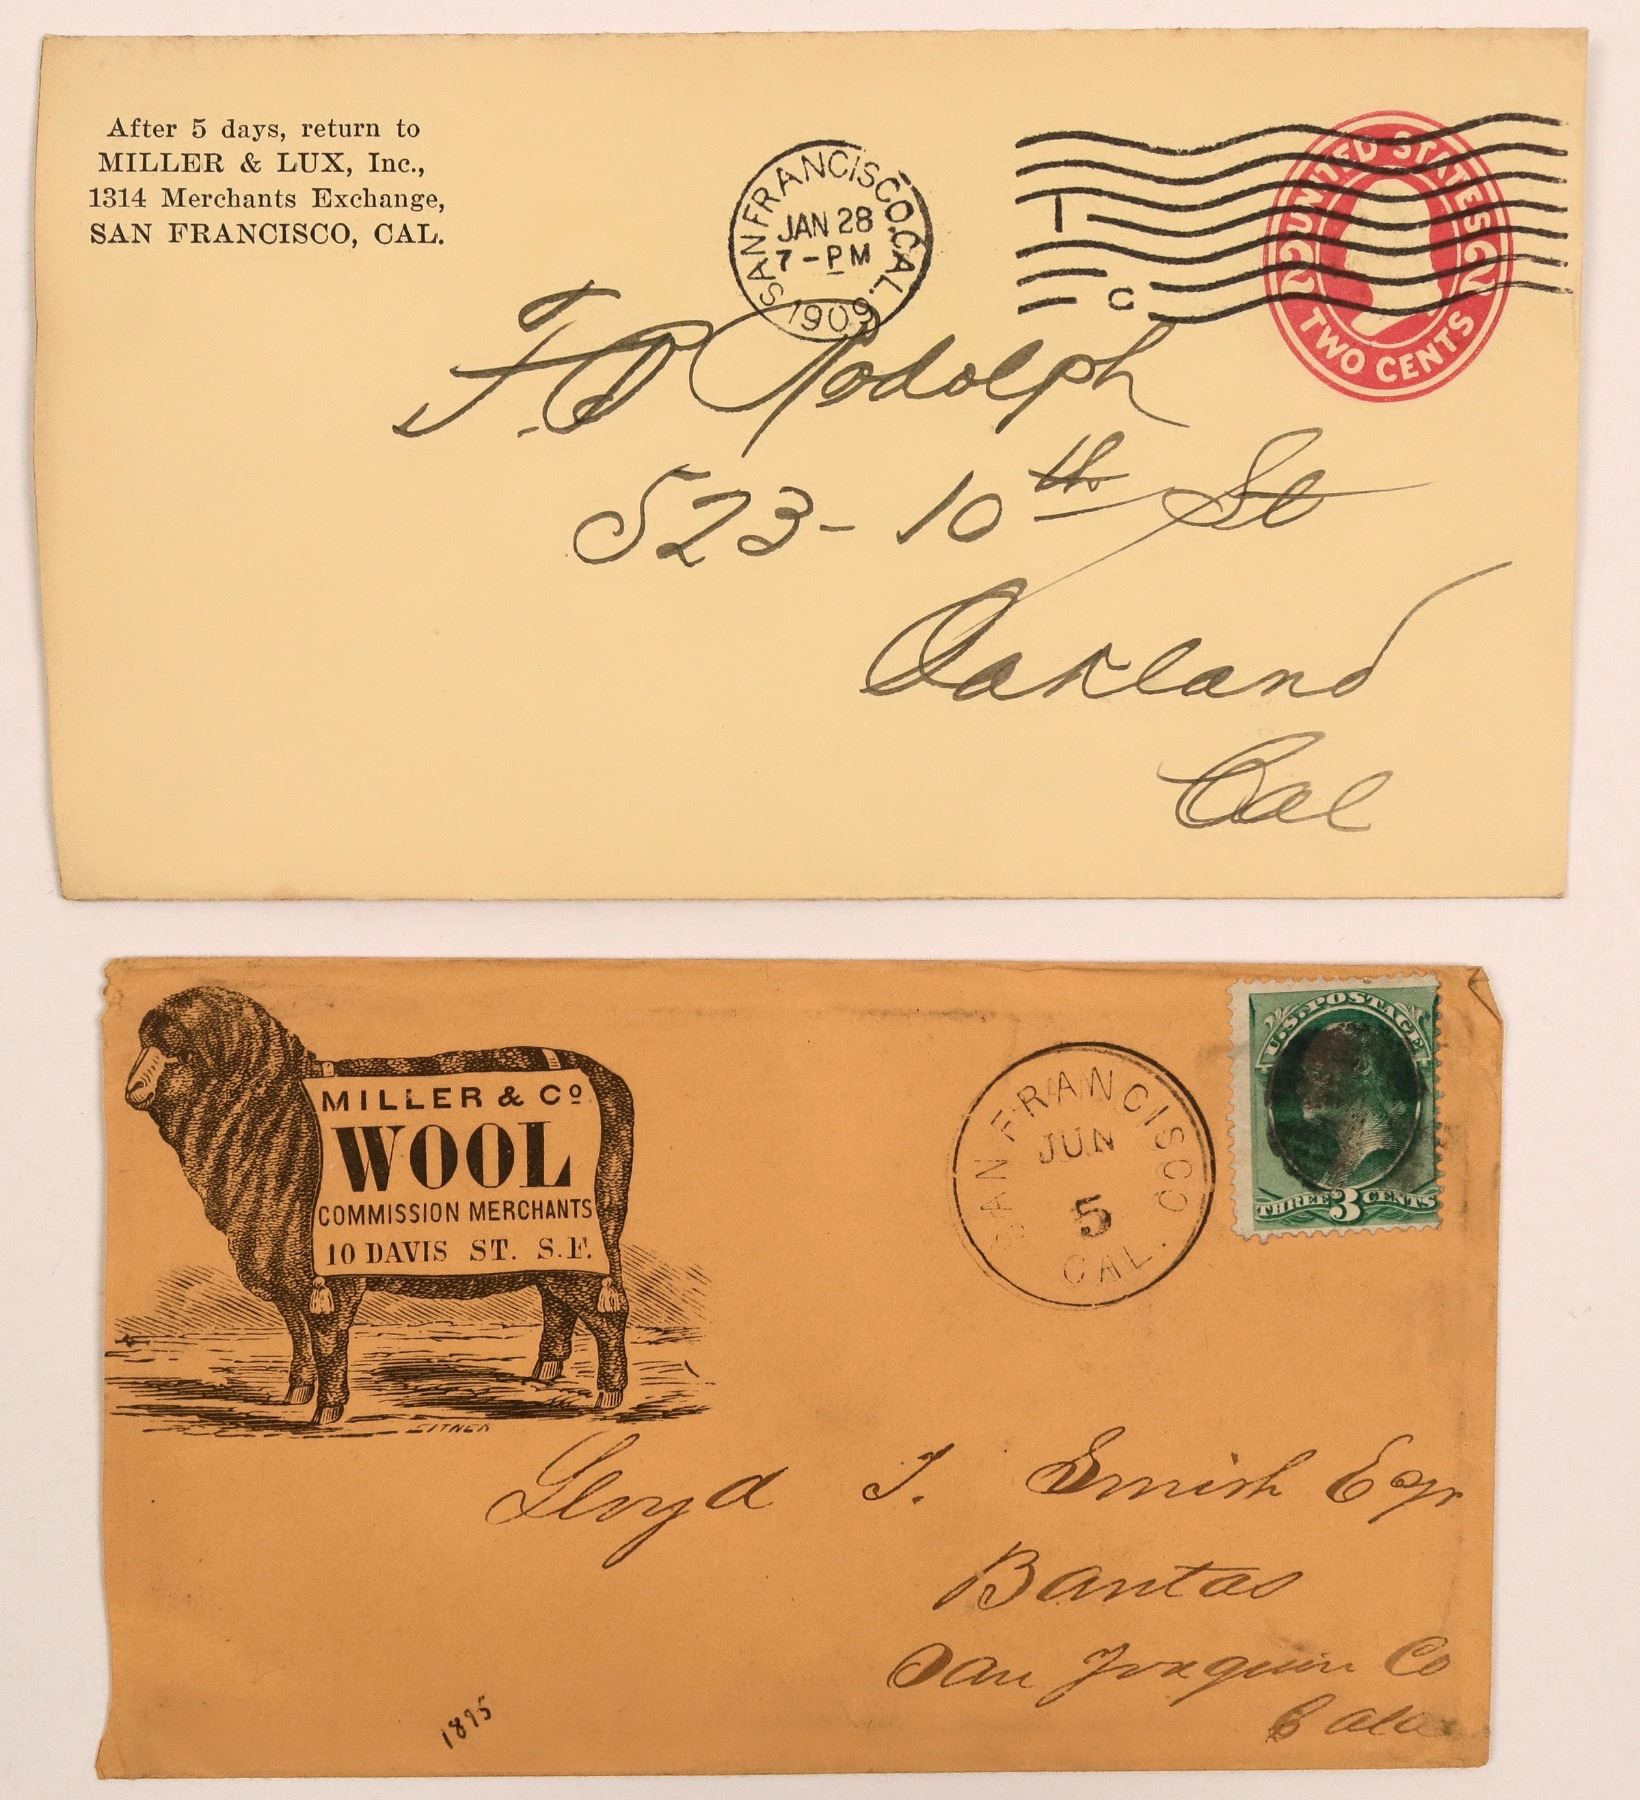 After 5 days, return to
MILLER & LUX, Inc.,
1314 Merchants Exchange,
SAN FRANCISCO, CAL.
SAN FRANCISCO, CAL.
JAN 28
7-PM
1909
1
C
UNITED STATES
2 2
TWO CENTS
F. O Rodolph
523- 10th St
Oakland
Cal
MILLER & Co.
WOOL
COMMISSION MERCHANTS
10 DAVIS ST. S.F.
EITNER
SAN FRANCISCO
JUN
5
CAL.
U.S. POSTAGE
THREE 3 CENTS
Lloyd T. Smith Esqr
Bantas
San Joaquin Co
Cala
1875